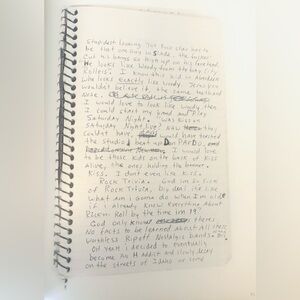 stupidest looking
be that one dude in Slade, the
cut his bangs so high up on his forehead
He looks like Woody from the Bay City
Rollers. I know this kid in Aberdeen
who looks exactly like Woody Jesus you
wouldnt believe it, the same
nose
I would love to look like Woody then
I could start my band and Play
Saturday Night. Was KISS on
Saturday Night live?
couldnt have would have trashed
the Studio, beat up
I would love
to be those kids on the back of KISS
Alive, the ones holding the banner.
Kiss. I dont even like Kiss,
Rock Trivia. God im so sick
of Rock Trivia, big deal its like
what am I gonna do when Im old
if I already know everything about
Rock n Roll by the time im 19?
God only knows theres
No facts to be learned about All these
worthless Ripoff Nostalgic bands.
Oh yeah I decided to eventually
become an H addict and slowly decay
on the streets of Idaho or some